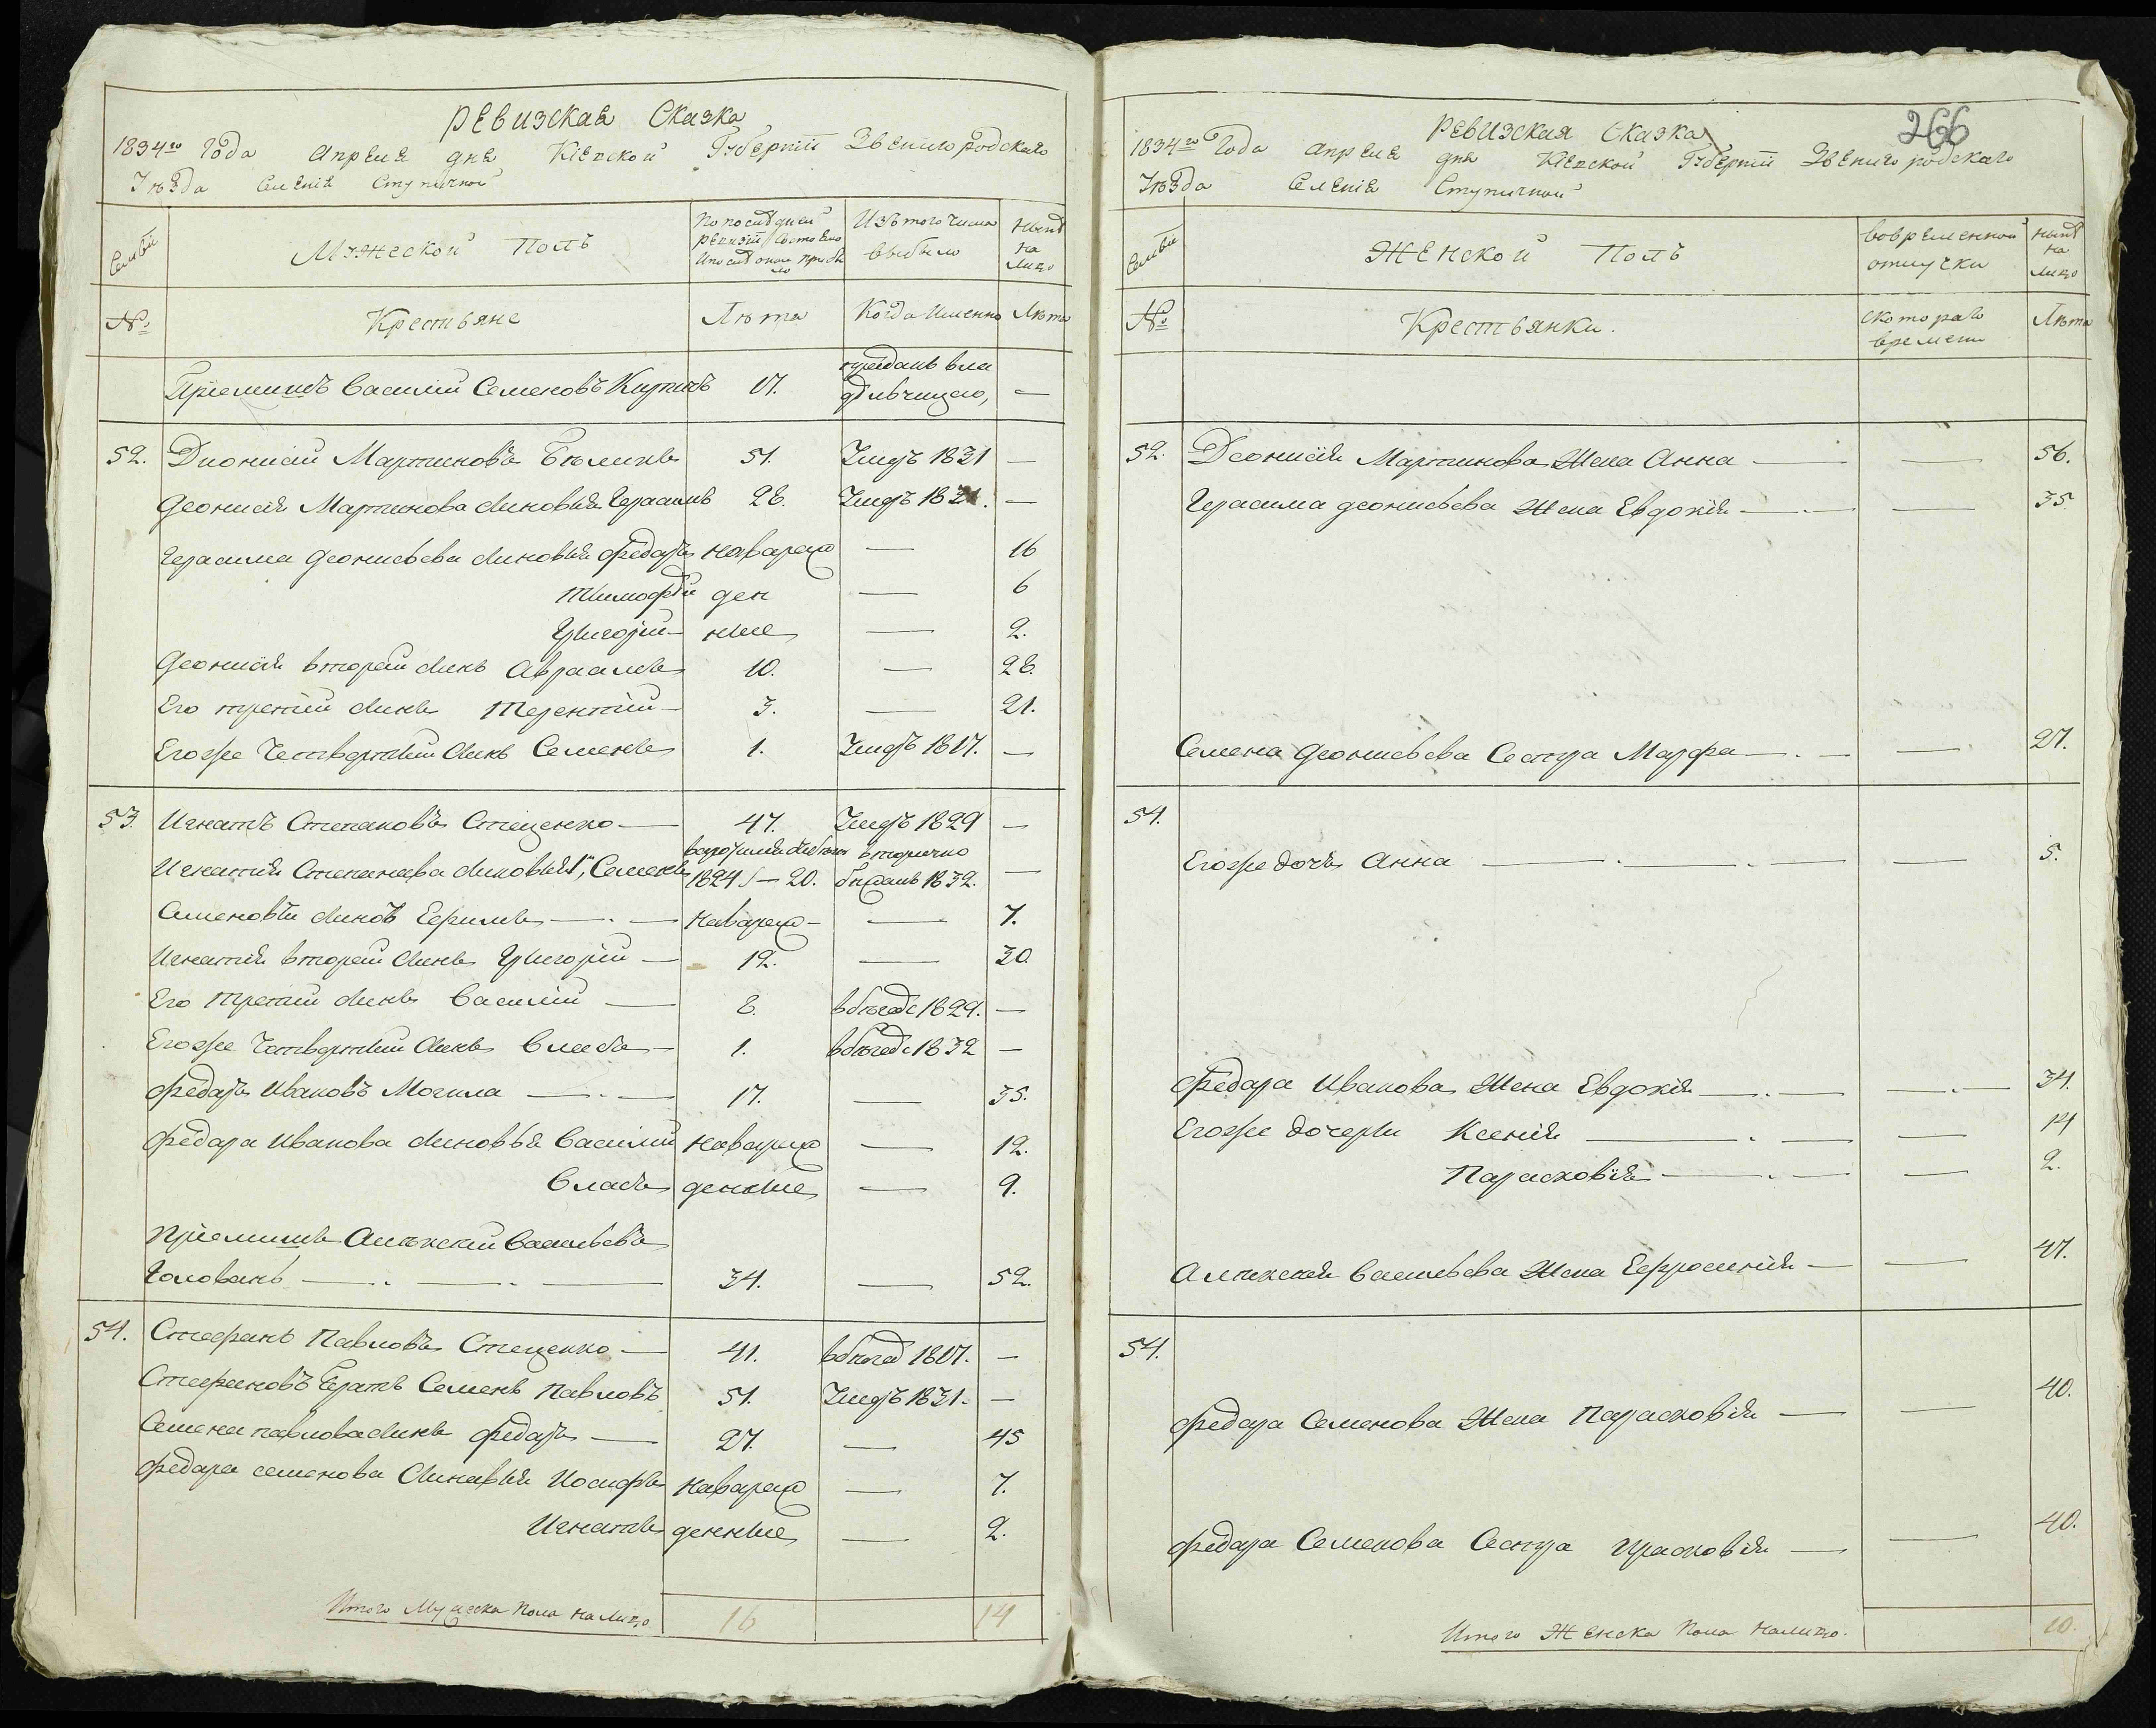 РЕВИЗСКАЯ Сказка
1834го Года Апреля дня Кіевской Губерніи Звенигородскаго
Уѣзда Селенія Ступичной
Семьи
Мужеской Полъ
По последней ревизіи состояло и после оной прибыло
Изъ того числа выбыло
Нынѣ на лицо
№
Крестьяне
Лѣта
Когда именно
Лѣта
Пріемышъ Василій Семеновъ 17. —
52. Дионисій Мартиновъ Бѣликъ 51. Умеръ 1831 —
Деонисія Мартинова сыновья Герасимъ 28. Умеръ 1831. —
Герасима Деонисьева сыновья Федоръ новорож — 16
Тимофѣй ден — 6
Григорій ные — 2.
Деонисія вторый сынъ Авраамъ 10. — 28.
Его третій сынъ Терентій 3. — 21.
Егоже Четвертый сынъ Семенъ 1. Умеръ 1817. —
53. Игнатъ Степановъ Стеценко — 47. Умеръ 1829 —
вторично
Игнатія Степанова сыновья 1й, Семенъ 1824 — 20. бѣжалъ 1832. —
Семеновъ сынъ Ефимъ — новорож — 7.
Игнатія вторый сынъ Григорій — 12. — 30.
Его третій сынъ Василій — 8. вбѣгаѣ 1829. —
Егоже Четвертый сынъ Власъ — 1. вбѣгаѣ 1832 —
Федоръ Ивановъ Могила — 17. — 35.
Федора Иванова сыновья Василій новорож — 12.
Власъ денные — 9.
Пріемышъ Алѣксѣй Васильевъ
Голованъ — 34. — 52.
54. Стефанъ Павловъ Стеценко — 41. вбѣгаѣ 1817. —
Стефановъ братъ Семенъ Павловъ 51. Умеръ 1831. —
Семена павлова сынъ Федоръ — 27. — 45
Федора семенова Сыновья Иосифъ новорож — 7.
Игнатъ денные — 2.
Итого Мужеска пола на лицо 16 14
266
РЕВИЗСКАЯ Сказка
1834го Года Апреля дня Кіевской Губерніи Звенигородскаго
Уѣзда Селенія Ступичной
Семьи
Женской Полъ
Вовременной отлучки
Нынѣ на лицо
№
Крестьянки.
Скотораго времени
Лѣта
52. Деонисія Мартинова Жена Анна — — 56.
Герасима деонисьева Жена Евдокія — — 35.
Семена Деонисьева Сестра Марфа — — 27.
54.
Егоже дочь Анна — — 5.
Федора Иванова Жена Евдокія — — 34.
Егоже дочери Ксенія — — 14
Парасковія — — 2.
Алѣксѣя Васильева Жена Ефросинія — — 47.
54.
Федора Семенова Жена Парасковія — — 40.
Федора Семенова Сестра Прасковія — — 40.
Итого Женска пола налицо. 10.